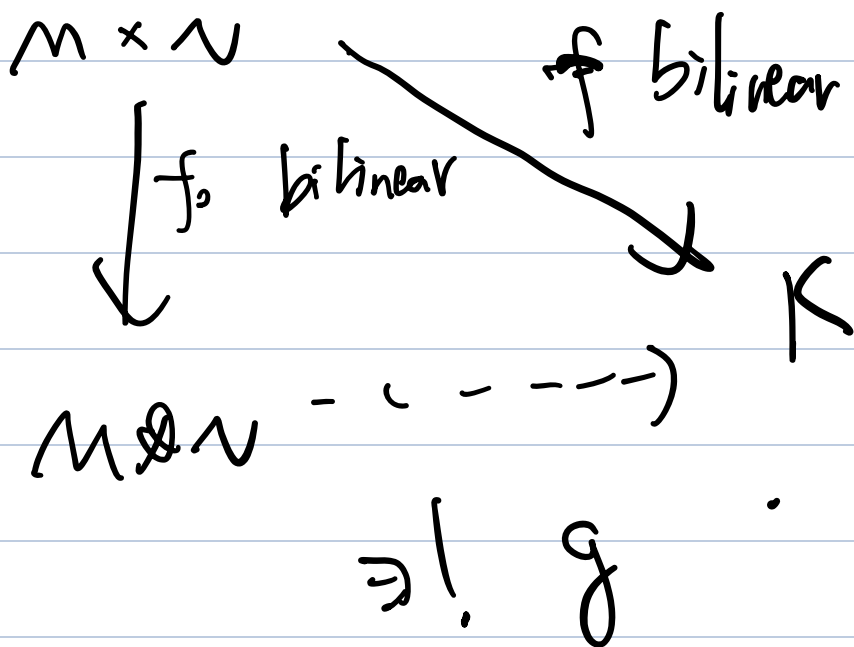 M × N
f bilinear
f₀ bilinear
K
M⊗N
∃! g